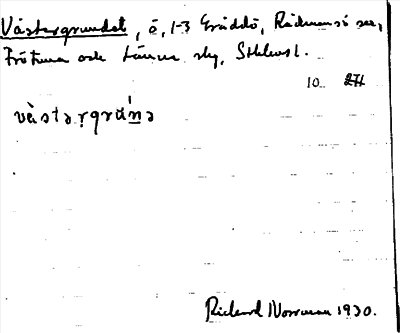 Västergrundet, ö, 1-3 Gräddö, Rådmansö sn,
Frötuna och Länna sky, Sthlmsl.
10
västərgrúnə
Rickard Norrman 1930.